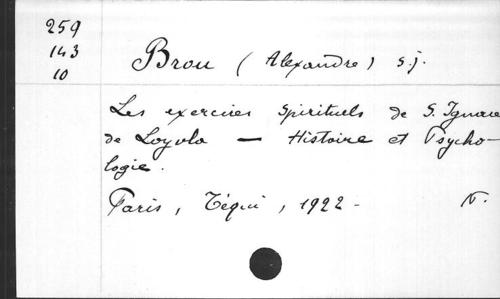 259
143
10
Brou (Alexandre) s.j.
Les exercices Spirituels de S. Ignace
de Loyola — Histoire et Psycho-
logie.
Paris, Téqui, 1922 -